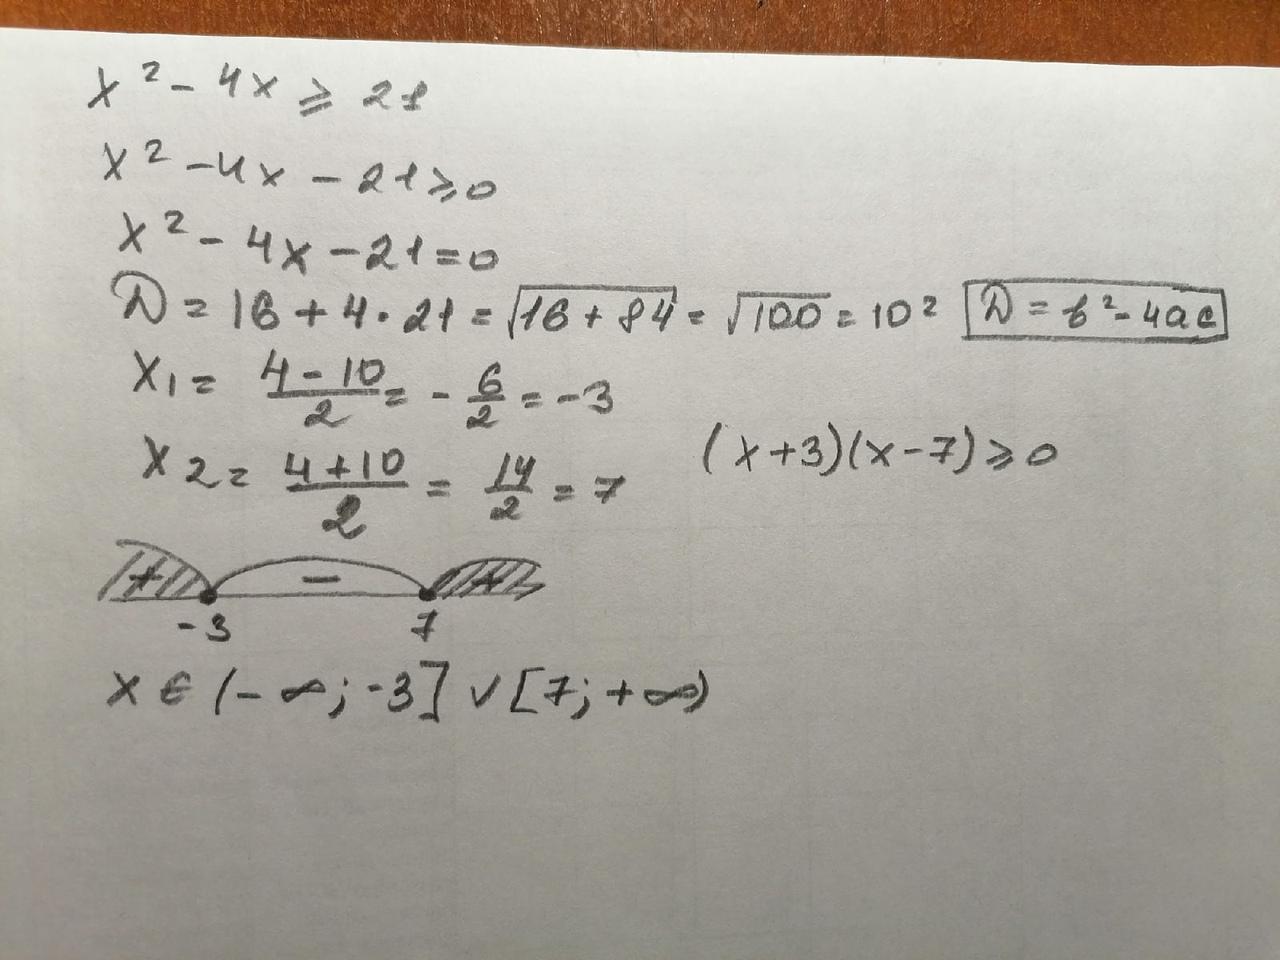 x² - 4x ⩾ 21
x² - 4x - 21 ⩾ 0
x² - 4x - 21 = 0
D = 16 + 4 · 21 = √16 + 84 = √100 = 10² D = b² - 4ac
x₁ = (4 - 10)/2 = - 6/2 = -3
x₂ = (4 + 10)/2 = 14/2 = 7 (x+3)(x-7) ⩾ 0
+ - +
-3 7
x ∈ (-∞; -3] ∨ [7; +∞)